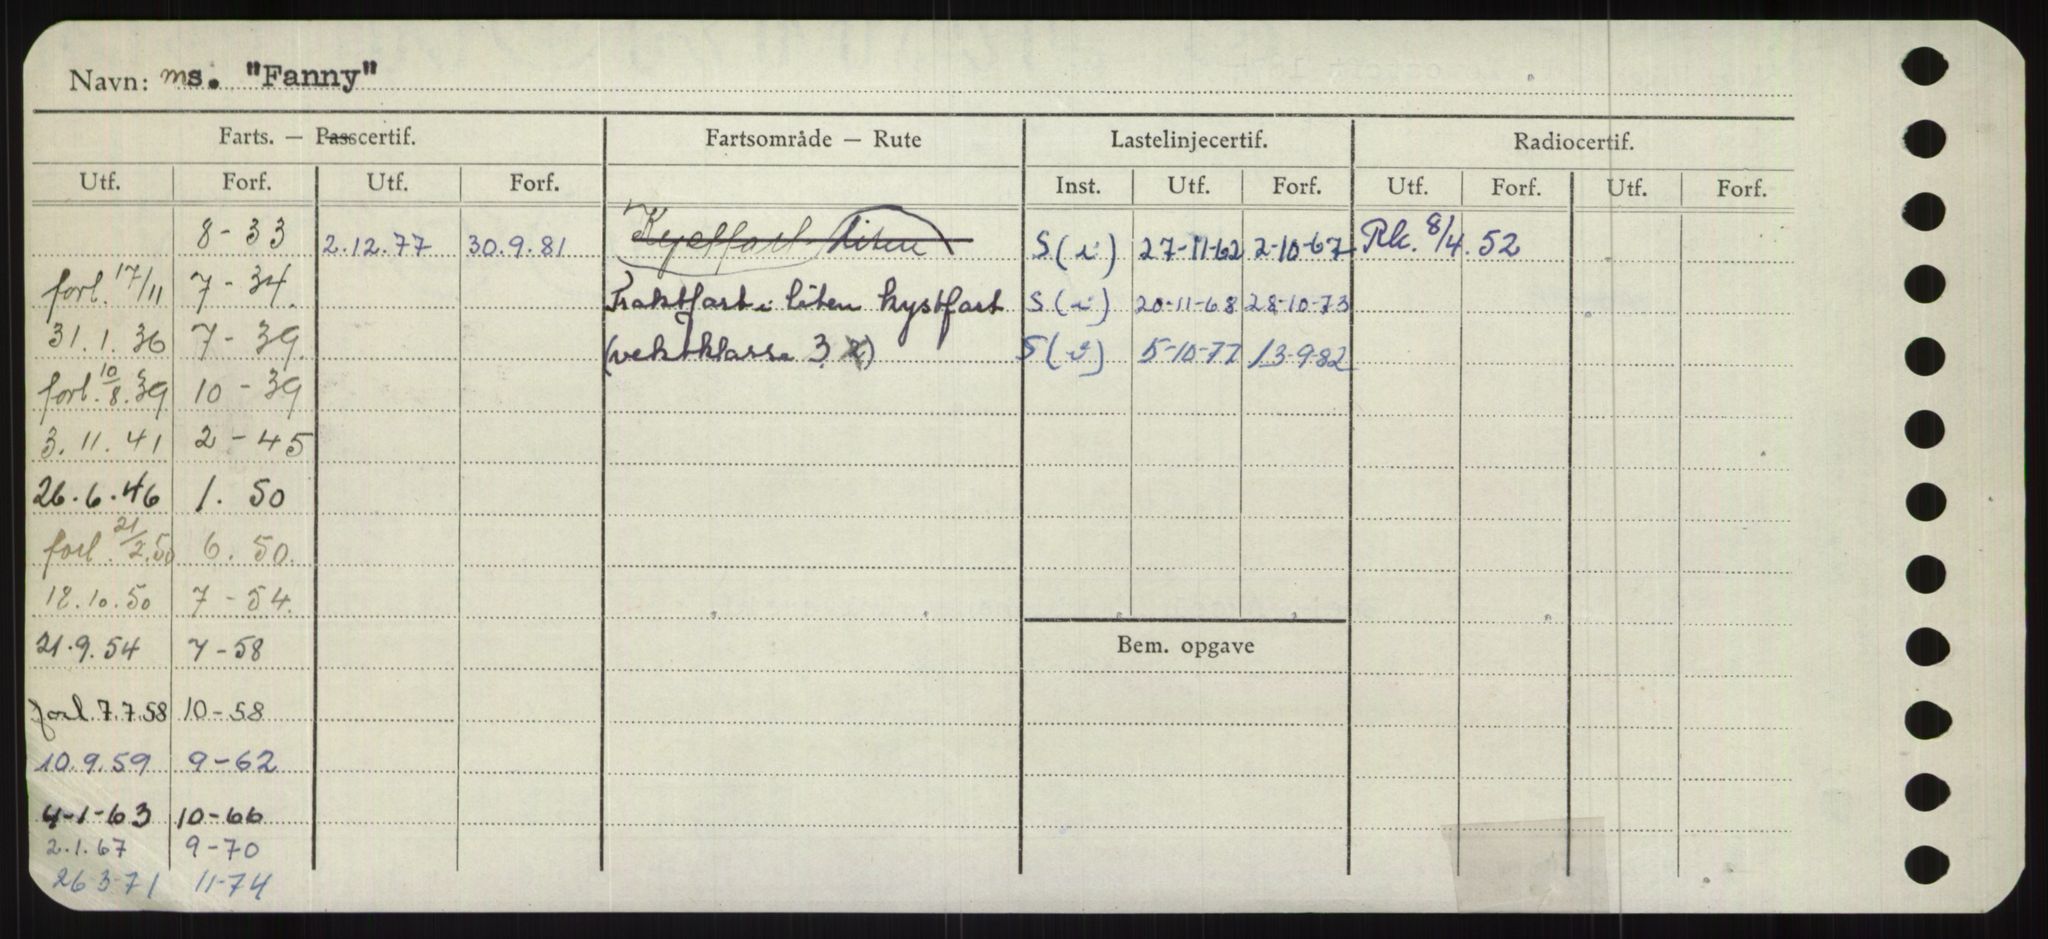 Navn: ms. "Fanny"
Farts. — Passcertif. Fartsområde — Rute Lastelinjecertif. Radiocertif.
Utf. Forf. Utf. Forf. Inst. Utf. Forf. Utf. Forf. Utf. Forf.
8-33 2.12.77 30.9.81 Kystfart liten S(i) 27-11-62 2-10-67 Rk. 8/4.52
forl. 17/11 7-34. Fraktfart i liten kystfart S(i) 20-11-68 28-10-73
31.1.36 7-39. (vektklasse 3) S(i) 5-10-77 13-9-82
forl. 10/8.39 10-39
3.11.41 2-45
26.6.46 1.50
forl. 21/2.50 6.50.
12.10.50 7-54.
21.9.54 7-58
Bem. opgave
forl 7.7.58 10-58
10.9.59 9-62
4-1-63 10-66
2.1.67 9-70
26-3-71 11-74